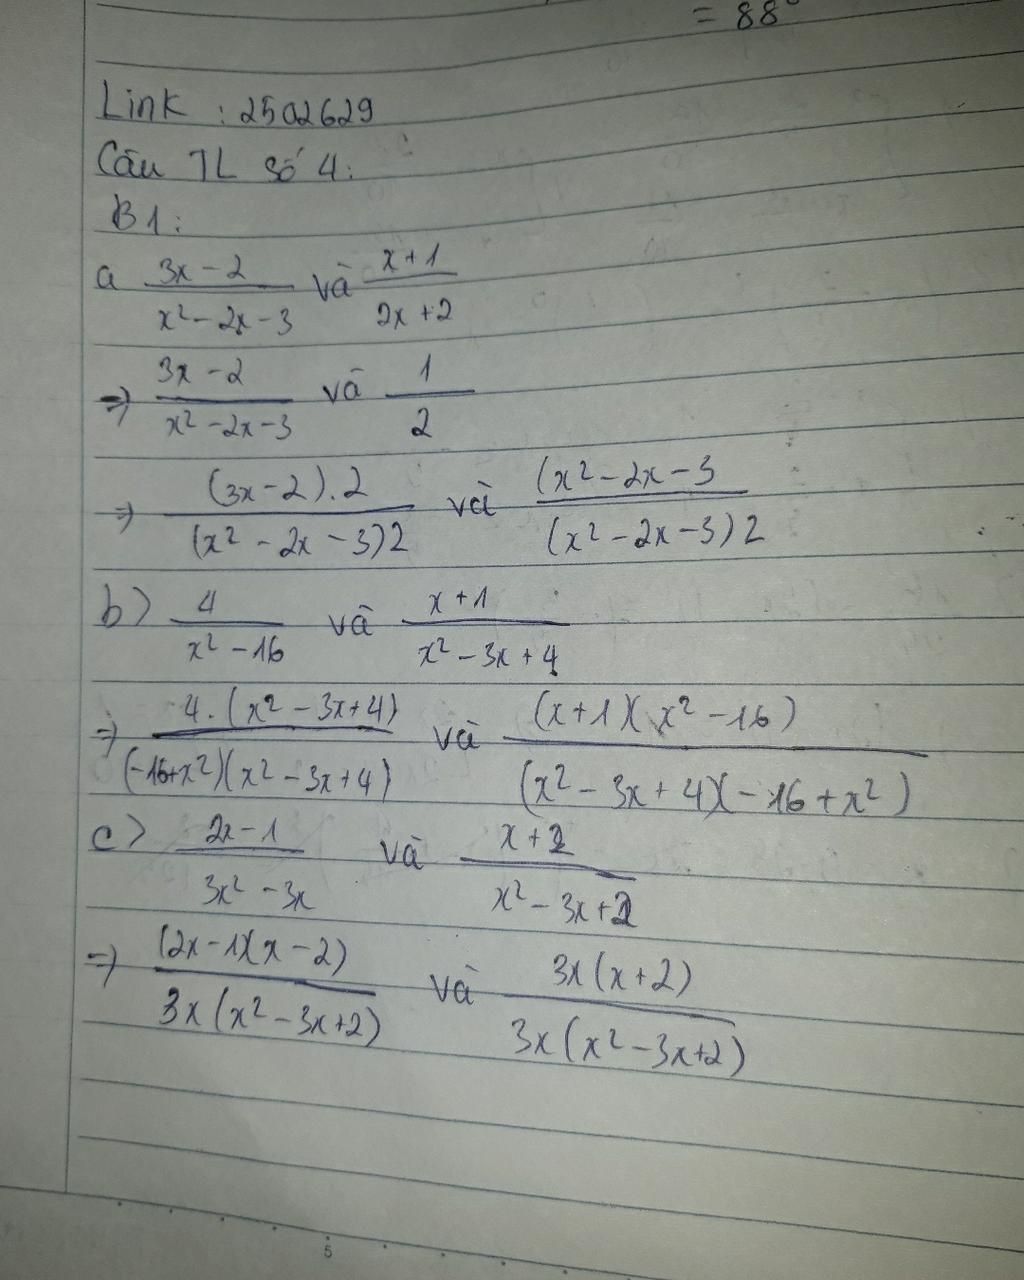 = 88°
Link : 2502629
Câu TL số 4:
B1:
a \frac{3x-2}{x²-2x-3} và \frac{x+1}{2x+2}
=> \frac{3x-2}{x²-2x-3} và \frac{1}{2}
=> \frac{(3x-2).2}{(x²-2x-3)2} và \frac{(x²-2x-3}{(x²-2x-3)2}
b) \frac{4}{x²-16} và \frac{x+1}{x²-3x+4}
=> \frac{4.(x²-3x+4)}{(-16+x²)(x²-3x+4)} và \frac{(x+1)(x²-16)}{(x²-3x+4)(-16+x²)}
c) \frac{2x-1}{3x²-3x} và \frac{x+2}{x²-3x+2}
=> \frac{(2x-1)(x-2)}{3x(x²-3x+2)} và \frac{3x(x+2)}{3x(x²-3x+2)}
5